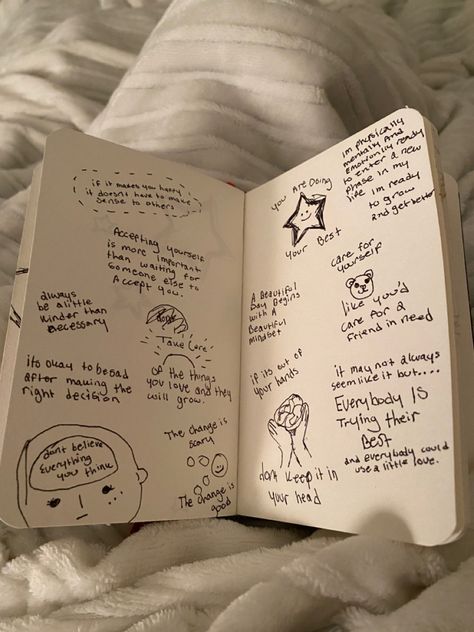 if it makes you happy
it doesn't have to make
sense to others
Accepting yourself
is more important
than waiting for
someone else to
Accept you.
always
be a little
kinder than
necessary
Take Care
of the things
you love and they
will grow.
its okay to be sad
after making the
right decision
The change is
scary
The change is
good
dont believe
Everything
you think
You Are Doing
your Best
im physically
mentally And
Emotionly ready
to enter a new
phase in my
life im ready
to grow
and get better
care for
yourself
like you'd
care for a
friend in need
A Beautiful
Day Begins
with A
Beautiful
mindset
if its out of
your hands
dont keep it in
your head
it may not always
seem like it but....
Everybody IS
Trying their
Best
and everybody could
use a little love.